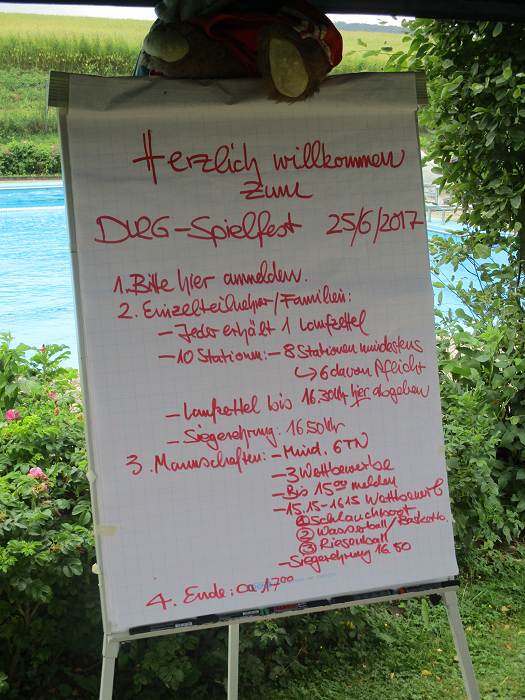 Herzlich willkommen
zum
DLRG-Spielfest 25/6/2017
1. Bitte hier anmelden.
2. Einzelteilnehmer/Familien:
- Jeder erhält 1 Laufzettel
- 10 Stationen: - 8 Stationen mindestens
↳ 6 davon Pflicht
- Laufzettel bis 16.30 Uhr hier abgeben
- Siegerehrung: 16.50 Uhr
3. Mannschaften: - Mind. 6 TN
- 3 Wettbewerbe
- Bis 15.00 melden
- 15.15-16.15 Wettbewerb
① Schlauchboot
② Wasserball/
③ Riesenball
- Siegerehrung 16.50
4. Ende: ca 17.00